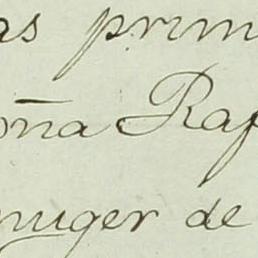 as prim
oña Raf
muger de